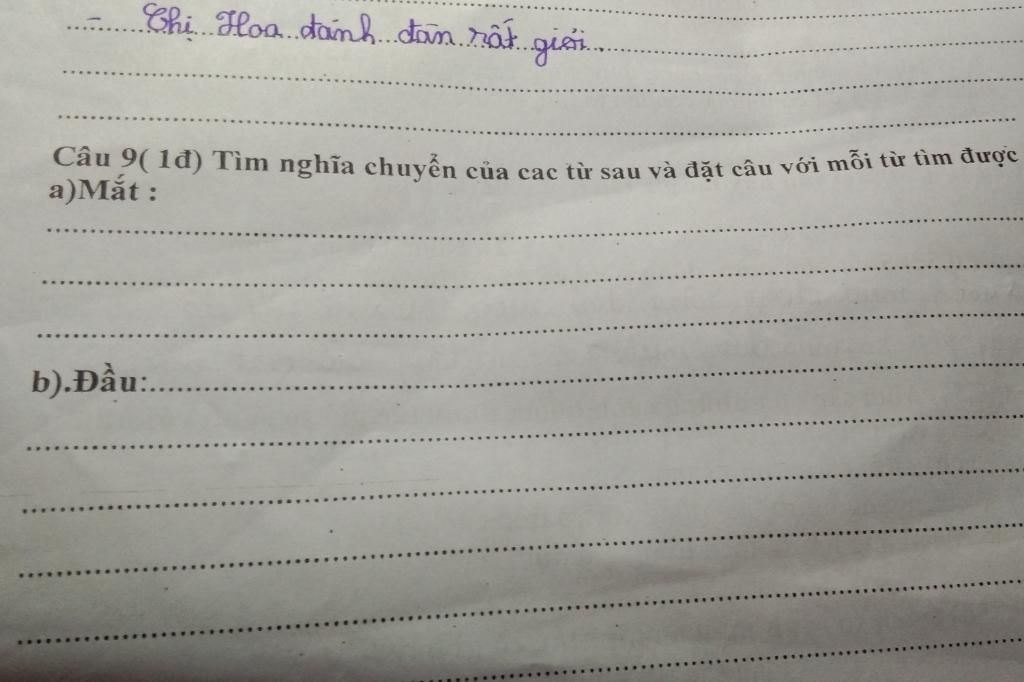 - Chị Hoa đánh đàn rất giỏi.
Câu 9( 1đ) Tìm nghĩa chuyển của cac từ sau và đặt câu với mỗi từ tìm được
a)Mắt :
b).Đầu: